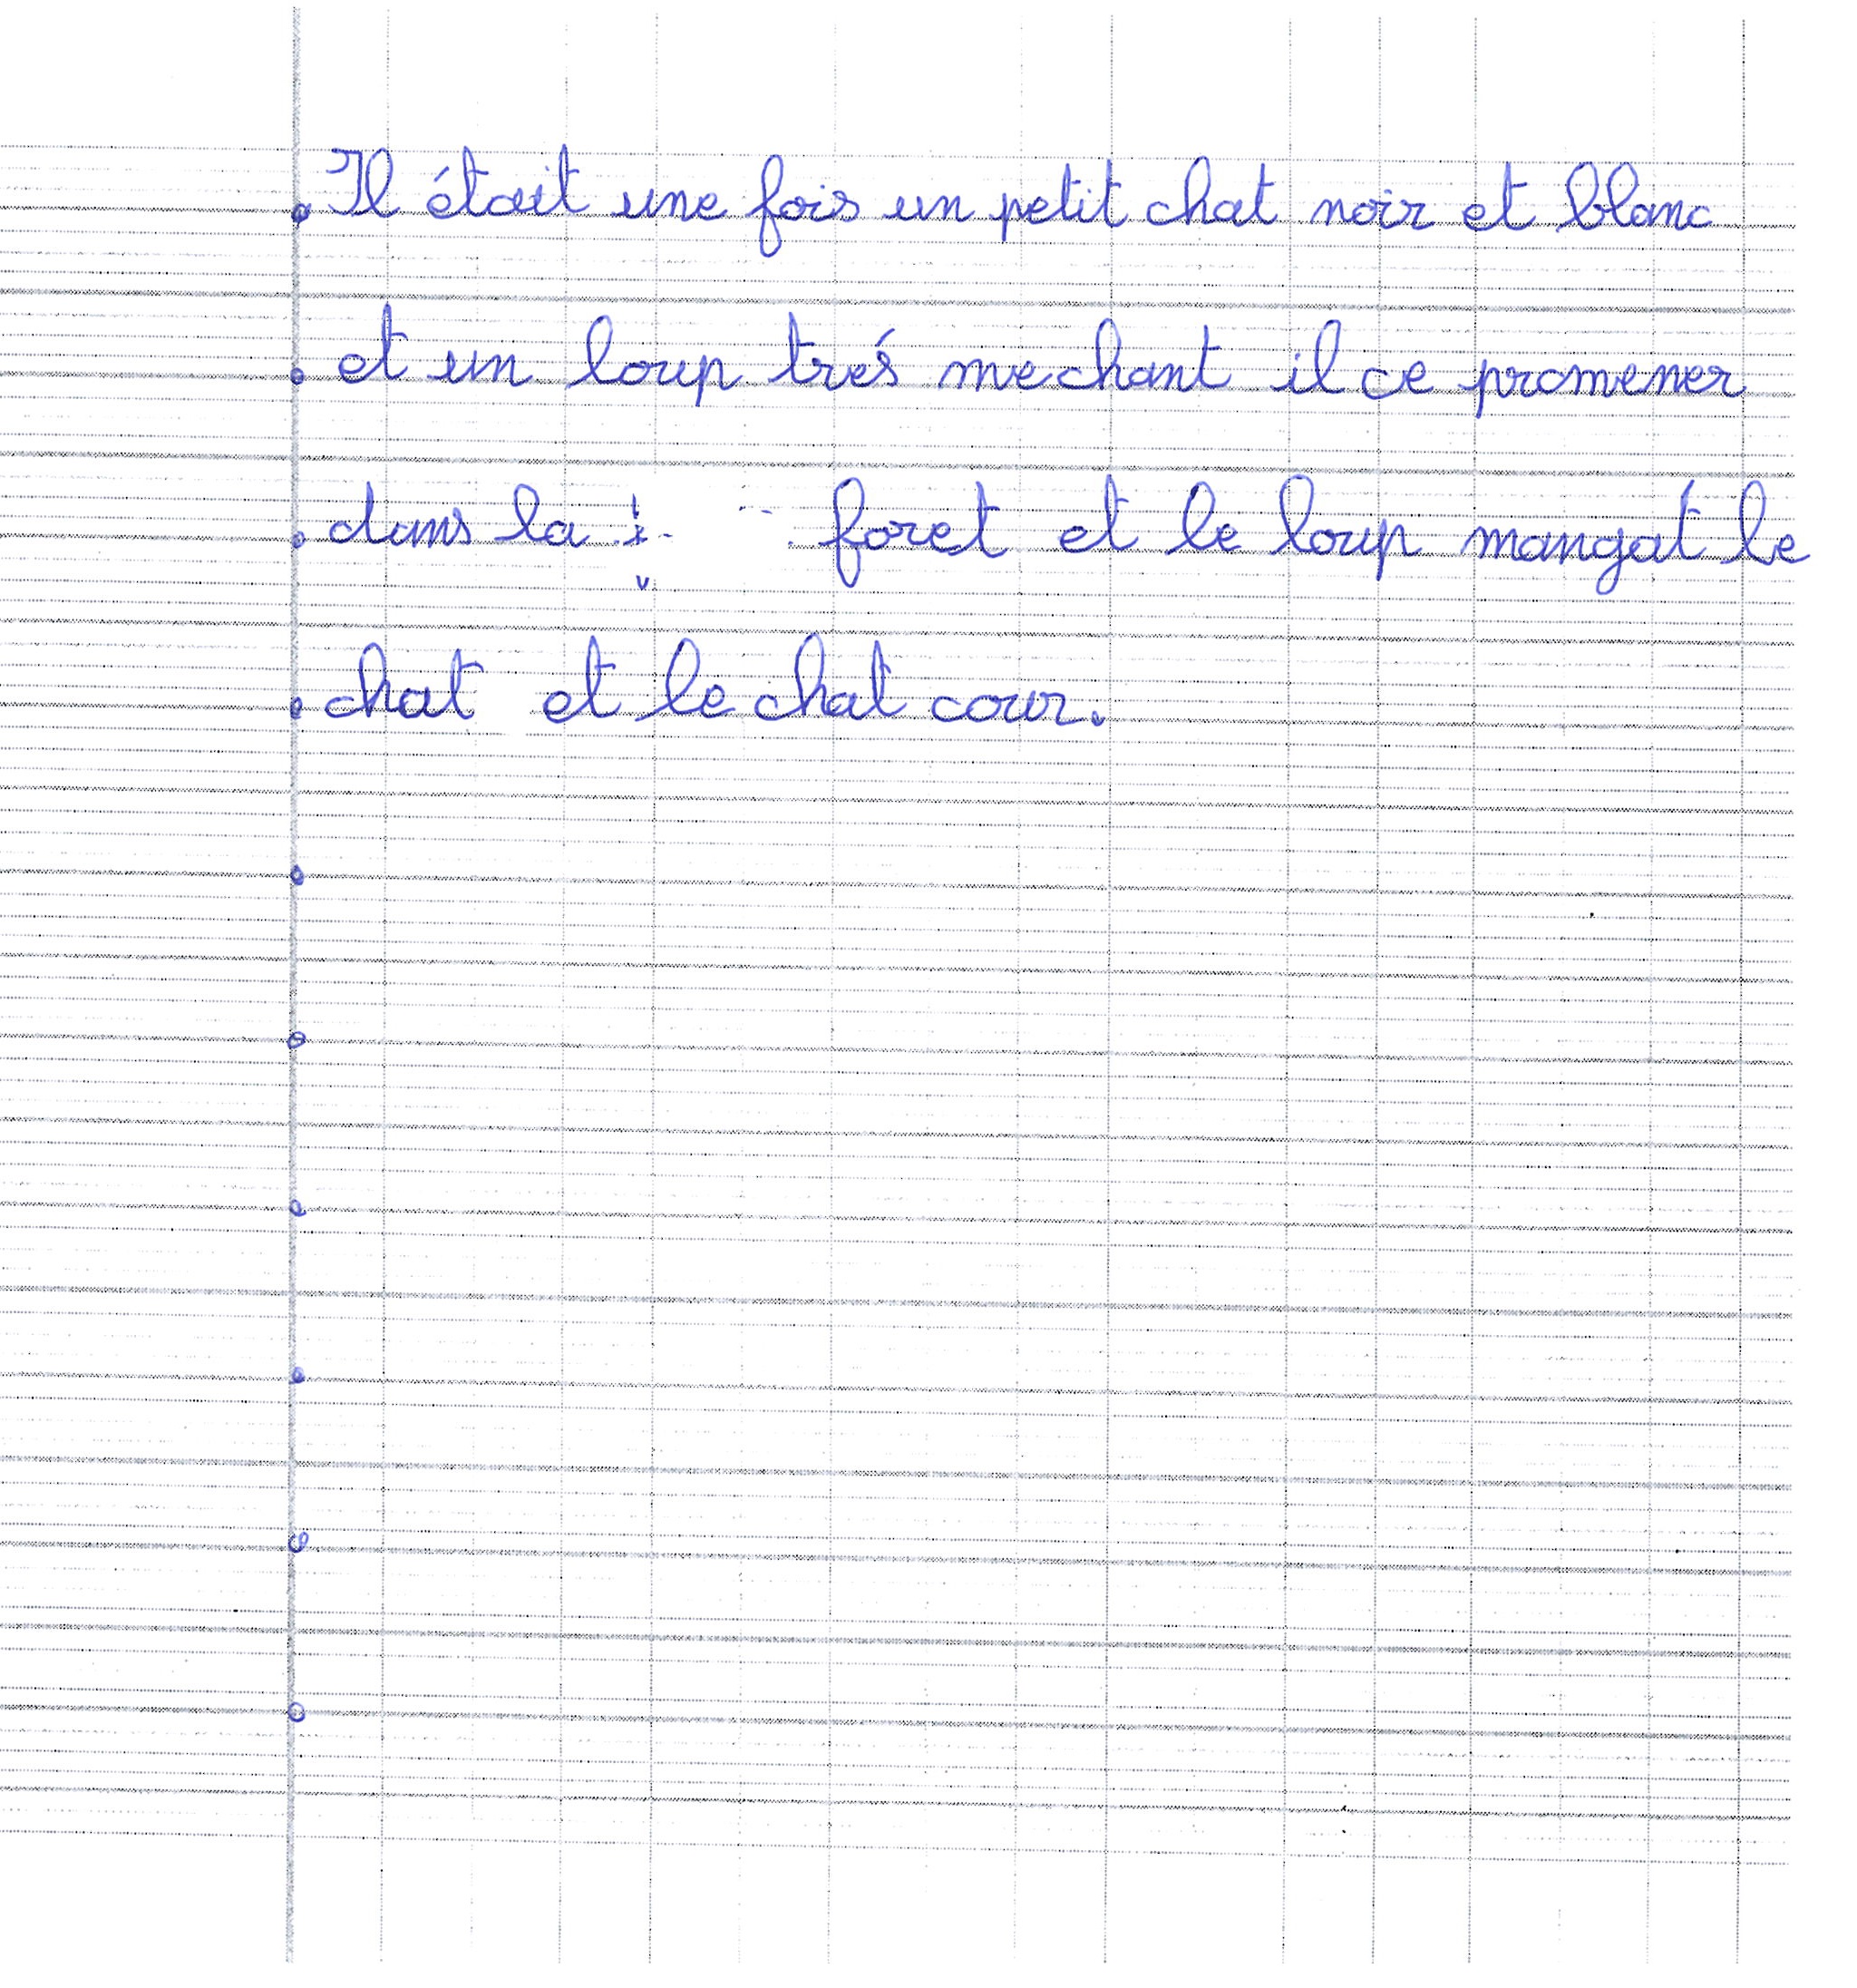 Il était une fois un petit chat noir et blanc
et un loup trés mechant il ce promener
dans la foret et le loup mangat le
chat et le chat cour.